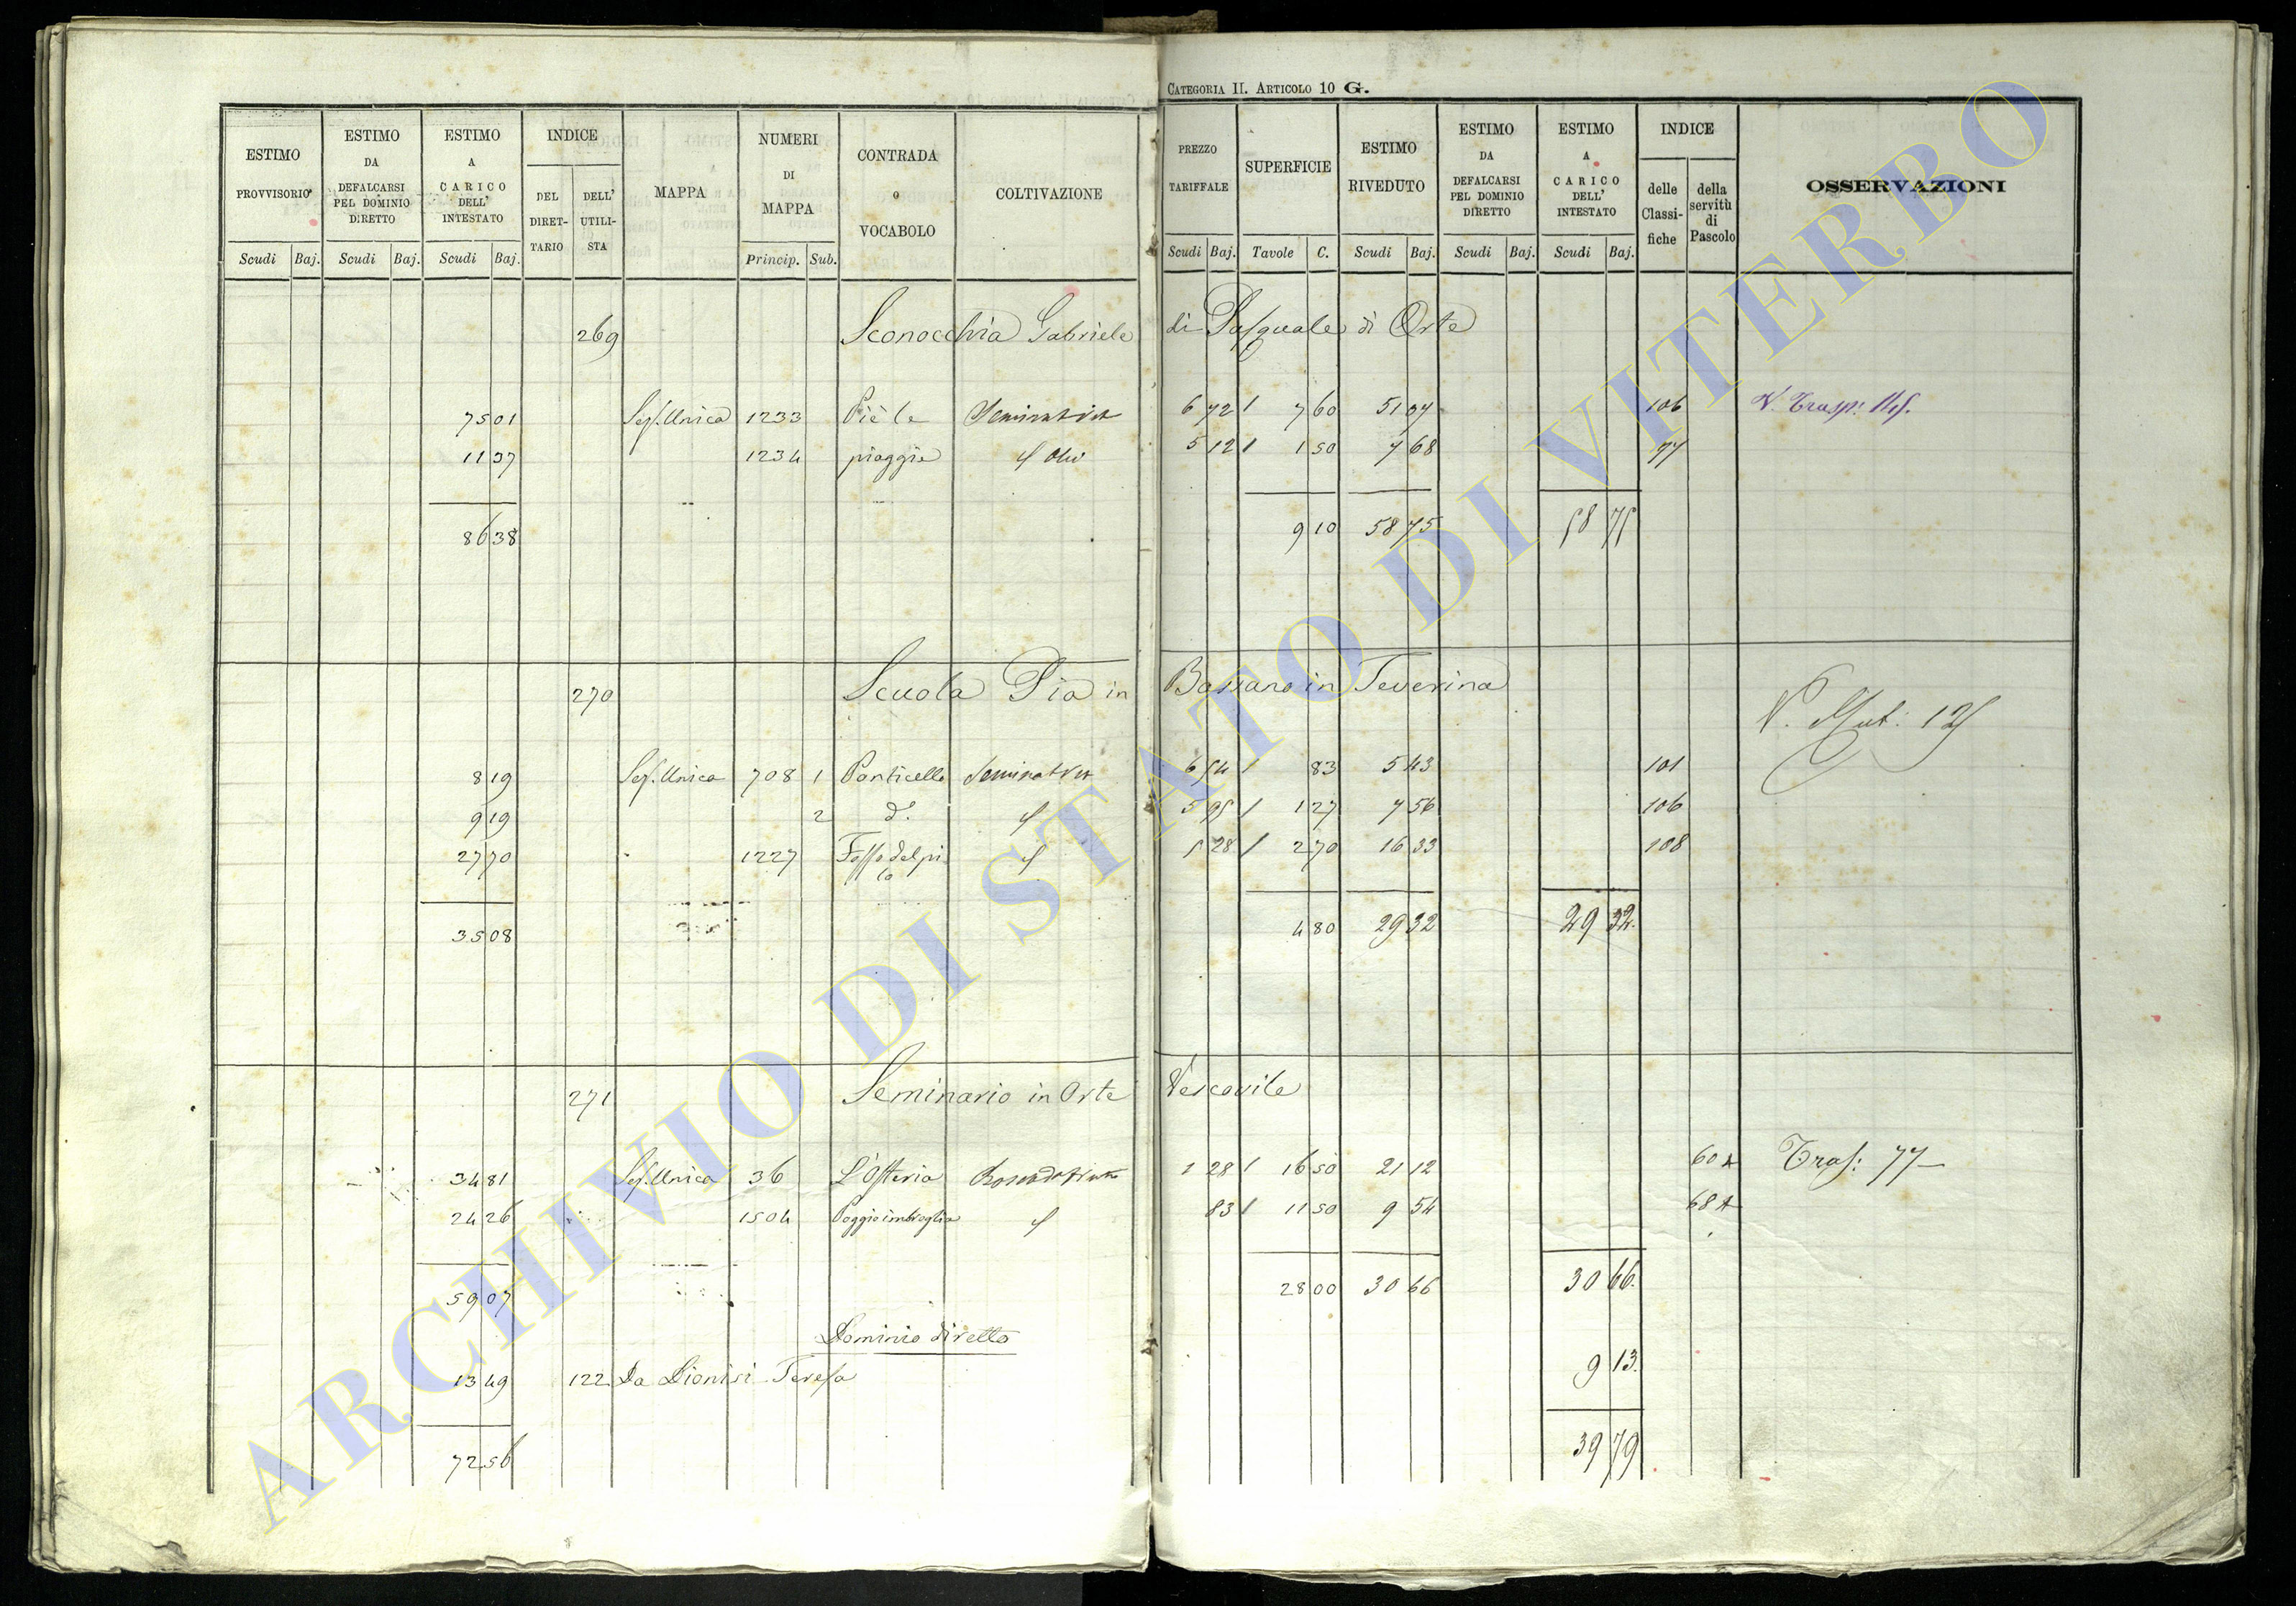 CATEGORIA II. ARTICOLO 10 G.
ESTIMO PROVVISORIO
ESTIMO DA DEFALCARSI PEL DOMINIO DIRETTO
ESTIMO A CARICO DELL' INTESTATO
INDICE
DEL DIRET-TARIO
DELL' UTILI-STA
MAPPA
NUMERI DI MAPPA
CONTRADA O VOCABOLO
COLTIVAZIONE
PREZZO TARIFFALE
SUPERFICIE
ESTIMO RIVEDUTO
ESTIMO DA DEFALCARSI PEL DOMINIO DIRETTO
ESTIMO A CARICO DELL' INTESTATO
INDICE
delle Classi-fiche
della servitù di Pascolo
OSSERVAZIONI
Scudi Baj. Scudi Baj. Scudi Baj. Princip. Sub. Scudi Baj. Tavole C. Scudi Baj. Scudi Baj. Scudi Baj.
269 Sconocchia Gabriele di Pasquale di Orte
75 01 Sez. Unica 1233 Piè le Seminativo 6 72 7 60 51 07 106 V. Trasp:
11 37 1234 piaggie 5 12 1 50 7 68 77
86 38 9 10 58 75 58 75
270 Scuola Pia in Bassano in Teverina
V. Mut: 125
8 19 Sez. Unica 708 1 Ponticello Seminativo 6 54 83 5 43 101
9 19 2 d.° 5 95 1 27 7 56 106
27 70 1227 Fosso del pi lo 5 28 2 70 16 33 108
35 08 4 80 29 32 29 32
271 Seminario in Orte Vescovile
34 81 Sez. Unica 36 L'Osteria 1 28 16 50 21 12 60 A Tras: 77
24 26 1504 Poggio imbroglia 83 11 50 9 54 68 A
59 07 28 00 30 66 30 66
Dominio diretto
13 49 122 Da Dionisi Teresa 9 13
72 56 39 79
ARCHIVIO DI STATO DI VITERBO